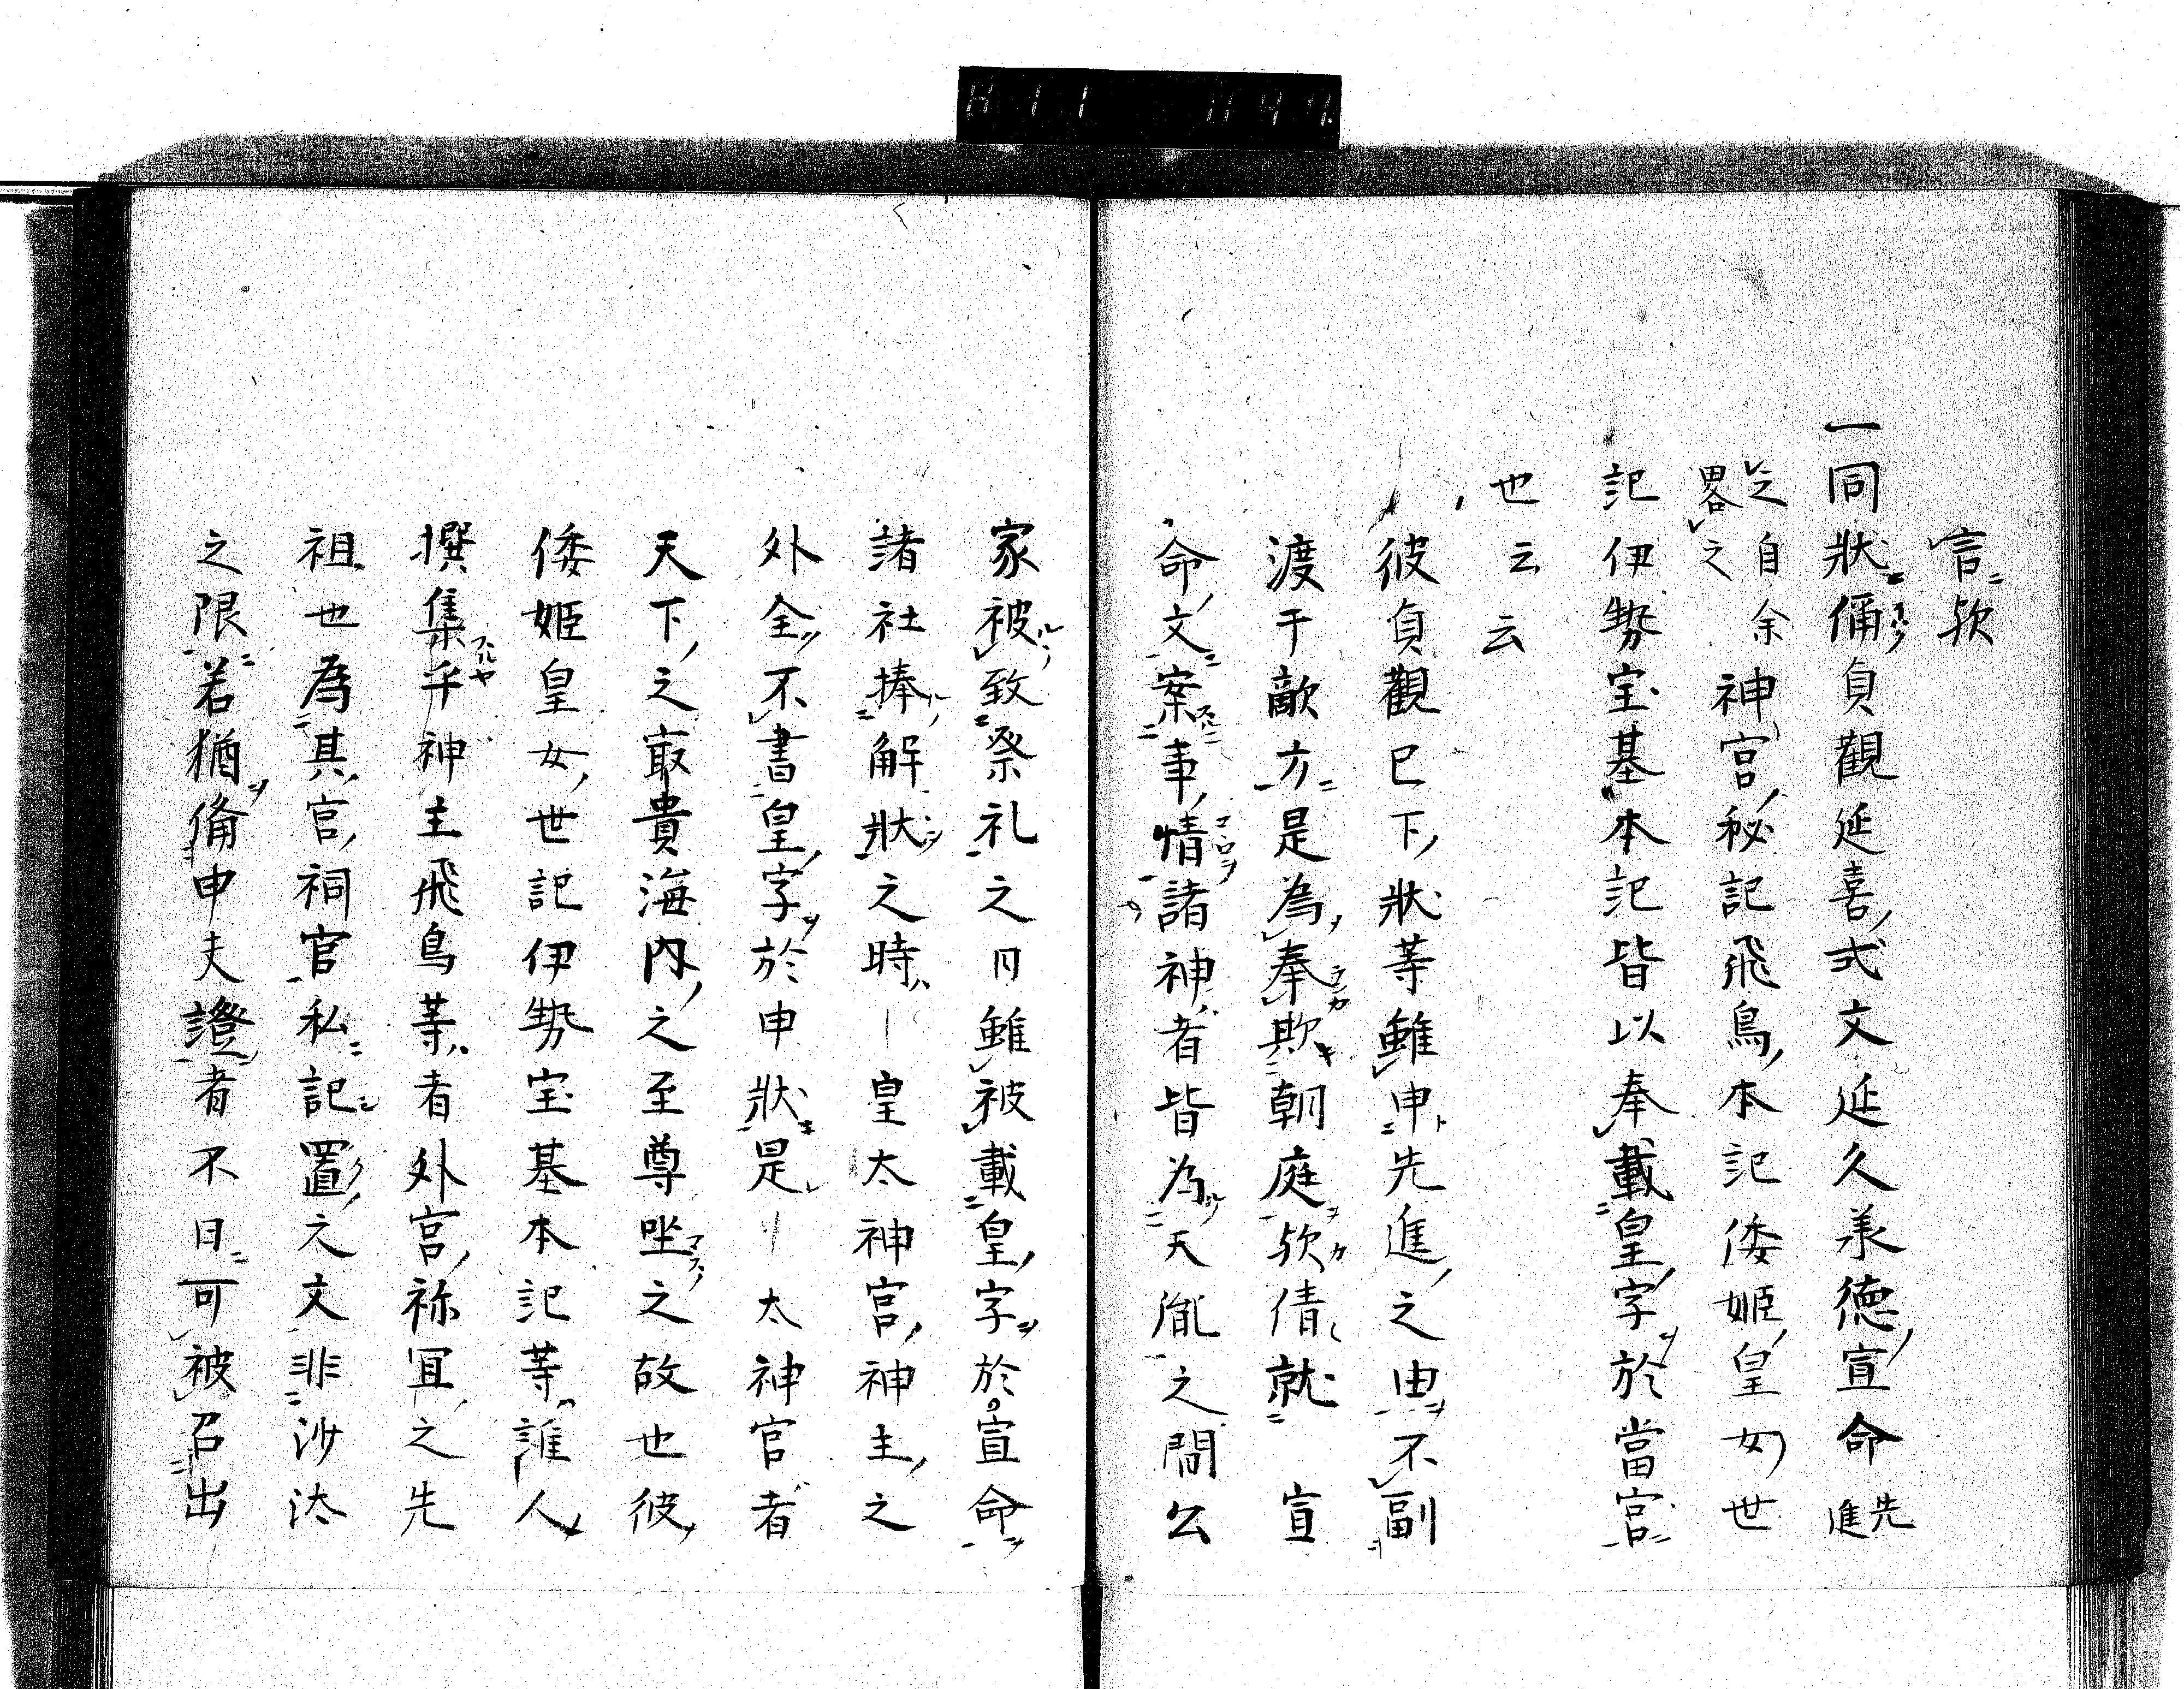 言欤
一同狀偁貞觀延喜式文延久承德宣命先進
之自余略之神宮秘記飛鳥本記倭姬皇女世
記伊勢宝基本記皆以奉載皇字於當宮
也云云
彼貞觀已下狀等雖申先進之由不副
渡于敵方是為奉欺朝庭欤倩就宣
命文案事情諸神者皆為天胤之間公
家被致祭礼之日雖被載皇字於宣命
諸社捧解狀之時皇太神宮神主之
外全不書皇字於申狀是太神宮者
天下之㝡貴海內之至尊坐之故也彼
倭姬皇女世記伊勢宝基本記等誰人
撰集乎神主飛鳥等者外宮祢冝之先
祖也為其官祠官私記置之文非沙汰
之限若猶備申夫證者不日可被召出